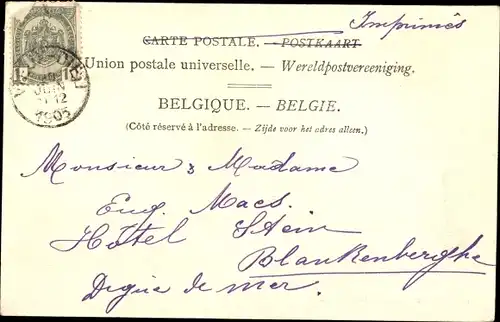 Imprimés
CARTE POSTALE. — POSTKAART.
Union postale universelle. — Wereldpostvereeniging.
BELGIQUE. — BELGIE.
(Côté réservé à l'adresse. — Zijde voor het adres alleen.)
JUIN
12
1905
Monsieur & Madame
Eug. Maes.
Hôtel Stein
Blankenberghe
Digue de mer.